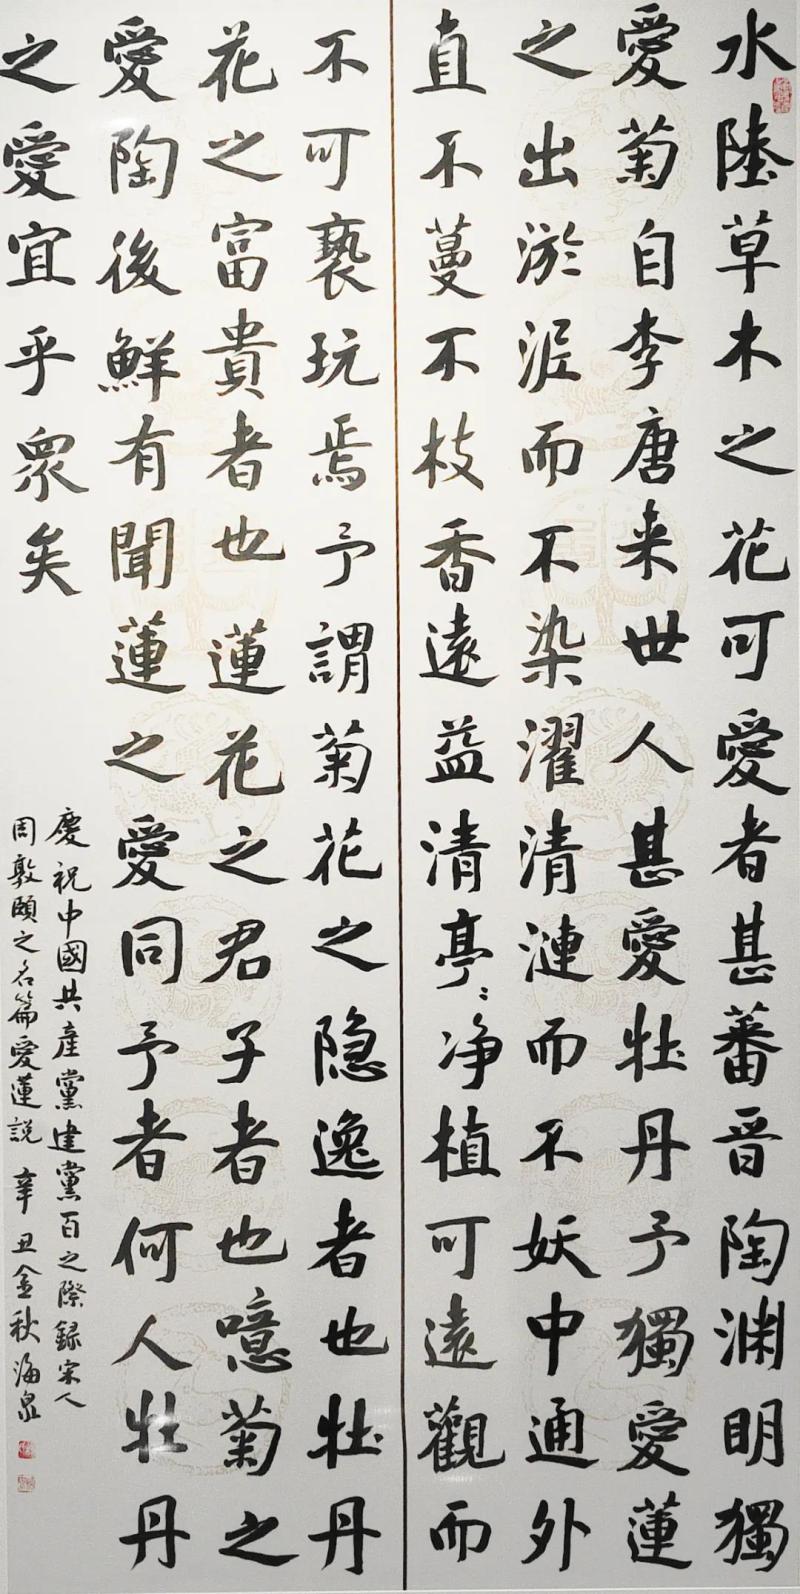 水陸草木之花可愛者甚蕃晋陶渊明獨
愛菊自李唐来世人甚愛牡丹予獨愛蓮
之出淤泥而不染濯清漣而不妖中通外
直不蔓不枝香遠益清亭〻净植可遠觀而
不可褻玩焉予謂菊花之隐逸者也牡丹
花之富貴者也蓮花之君子者也噫菊之
愛陶後鮮有聞蓮之愛同予者何人牡丹
之愛宜乎眾矣
慶祝中國共產黨建黨百之際録宋人
周敦頤之名篇愛蓮説 辛丑金秋海泉